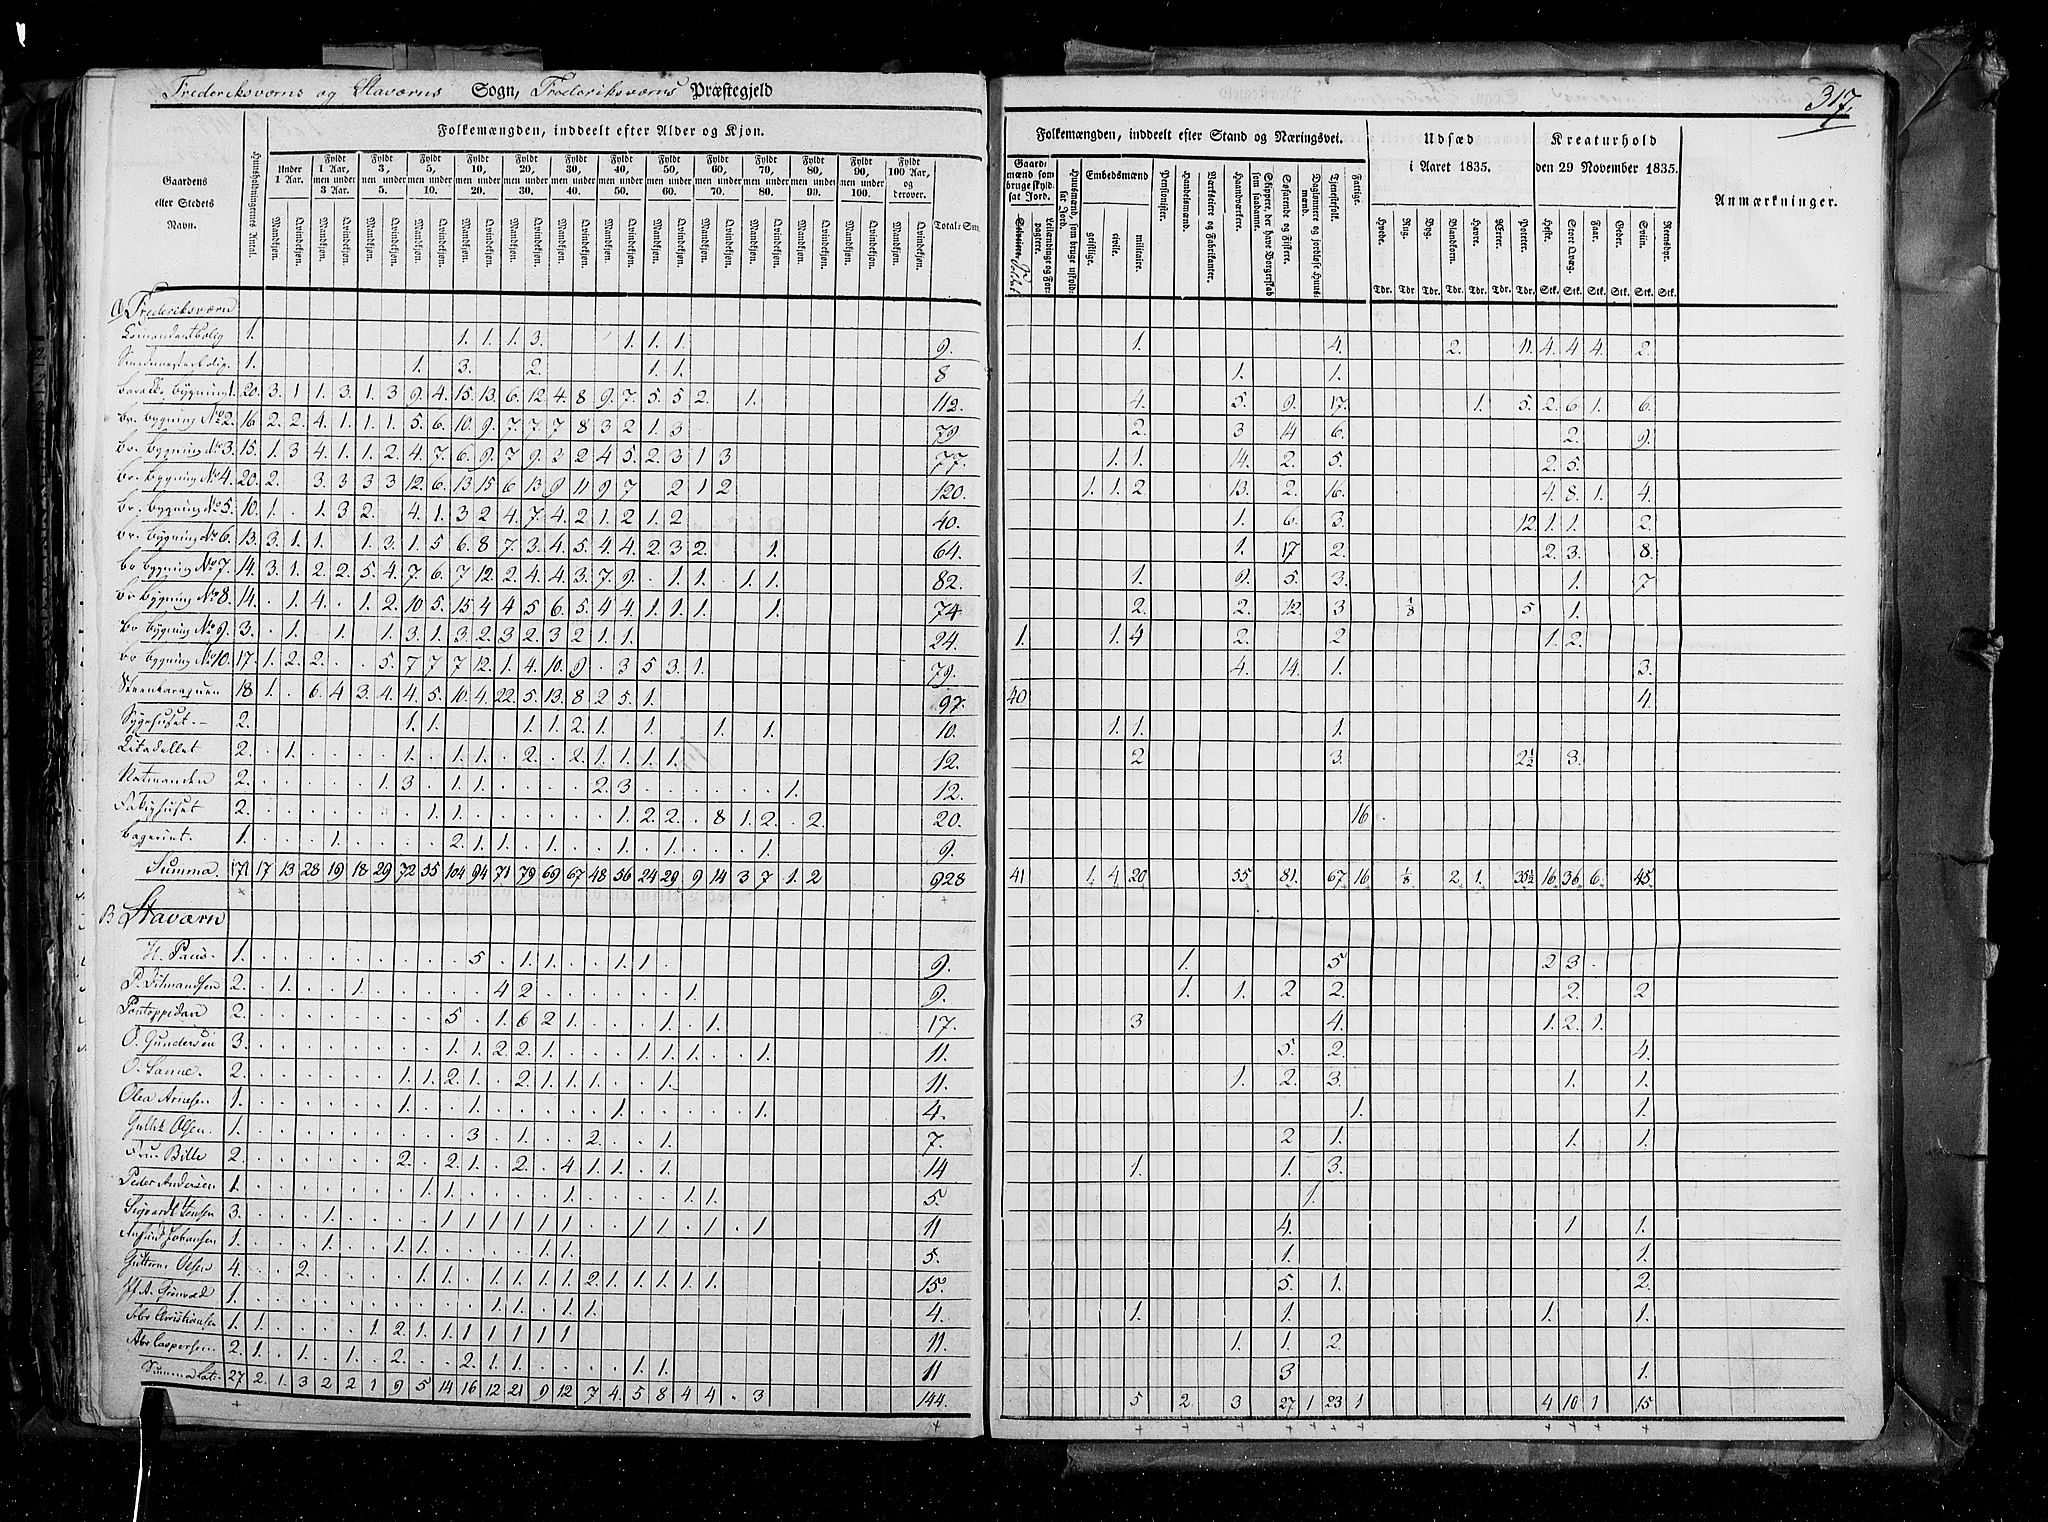 Frederiksværns og Staværns Sogn, Frederiksværns Præstegjeld
317.
Folkemængden, inddeelt efter Alder og Kjøn.
Gaardens eller Stedets Navn.
Huusholdningernes Antal.
Under 1 Aar.
Fyldt 1 Aar, men under 3 Aar.
Fyldt 3, men under 5.
Fyldt 5, men under 10.
Fyldt 10, men under 20.
Fyldt 20, men under 30.
Fyldt 30, men under 40.
Fyldt 40, men under 50.
Fyldt 50, men under 60.
Fyldt 60, men under 70.
Fyldt 70, men under 80.
Fyldt 80, men under 90.
Fyldt 90, men under 100.
Fyldt 100 Aar, og derover.
Mandkjøn. Qvindekjøn.
Total-Sum
Folkemængden, inddeelt efter Stand og Næringsvei.
Gaardmænd som bruge skyldsat Jord.
Leilændinge og Forpagtere.
Huusmænd, som bruge uskyldsat Jord.
Embedsmænd
geistlige. civile. militaire.
Pensionister.
Handelsmænd.
Værkseiere og Fabrikanter.
Haandværkere.
Skippere, der have Borgerskab som saadanne.
Søfarende og Fiskere.
Daglønnere og jordløse Huusmænd.
Tjenestefolk.
Fattige.
Udsæd i Aaret 1835.
Hvede. Rug. Byg. Blandkorn. Havre. Ærter. Poteter.
Tdr. Tdr. Tdr. Tdr. Tdr. Tdr. Tdr.
Kreaturhold den 29 November 1835.
Heste. Stort Qvæg. Faar. Geder. Sviin. Reensdyr.
Stk. Stk. Stk. Stk. Stk. Stk.
Anmærkninger.
A Frederiksværn
1. 1. 1. 1. 3. 1. 1. 1. 9. 1. 4. 2. 11. 4. 4 4. 2.
1. 1. 3. 2. 1. 1. 8 1. 1.
Bygning 1. 20. 3. 1 1. 3. 1. 3 9. 4. 15. 13. 6. 12 4. 8 9. 7. 5. 5 2. 1. 112. 4. 5. 9. 17. 1. 5. 2. 6 1. 6.
Br. Bygning No 2. 16 2. 2. 4. 1. 1. 1. 5. 6. 10. 9. 7. 7. 7 8 3 2 1. 3 79. 2. 3 14 6. 2. 9.
Br. Bygning No 3. 15. 1. 3 4. 1. 1. 2. 4. 7. 6. 9. 7 9. 3 2 4 5. 2. 3 1 3 77. 1. 1. 14. 2. 5. 2. 5.
Br. Bygning No 4. 20. 2. 3. 3 3 3 12. 6. 13 15 6 13. 9 11 9 7 2 1 2 120. 1. 1. 2 13. 2. 16. 4. 8. 1. 4.
Br. Bygning No 5. 10. 1. 1. 3 2. 4. 1. 3 2 4. 7. 4. 2. 1. 2 1. 2 40. 1. 6. 3. 12. 1. 1. 2.
Br. Bygning No 6. 13. 3. 1. 1. 1. 3. 1. 5 6. 8 7. 3. 4. 5. 4. 4. 2. 3 2. 1. 64. 1. 17 2. 2. 3. 8.
Br Bygning No 7. 14. 3. 1. 2. 2. 5. 4. 7. 6. 7 12. 2. 4. 4. 3. 7. 9. 1. 1. 1. 1. 82. 1. 9. 5. 3. 1. 7
Br Bygning No 8. 14. 1. 4. 1. 2. 10 5. 15 4 4 5 6. 5. 4 4 1. 1. 1. 1. 74. 2. 2. 12. 3 1/8 5 1.
Br Bygning No 9. 3. 1. 1. 1. 3. 1. 3 2. 3 2. 3 2 1. 1. 24. 1. 1. 4 2. 2 1. 2.
Br Bygning No 10. 17. 1. 2. 2. 5. 7 7 7 12. 1. 4. 10. 9. 3 5 3. 1. 79. 4. 14. 1. 3.
18 1. 6. 4 3. 4. 4. 5. 10. 4. 22. 5. 13. 8 2 5. 1. 97. 40 4.
Sygehuset 2. 1. 1. 1. 1. 2. 1. 1. 1. 1. 10. 1. 1. 1.
Citadellet 2. 1. 1. 1. 1. 2. 2. 1. 1. 1. 1. 12. 2 3. 2½ 3.
Natmanden 2. 1. 3 1. 1. 2. 3 1. 12.
2. 1. 1. 1. 2 2. 8 1. 2. 2. 20. 16.
1. 1. 2. 1. 1. 1. 1. 1. 1. 9.
Summa. 171 17 13 28 19 18 29 72 55 104 94 71 79 69 67 48 56 24 29 9 14 3 7 1. 2 928 41 1. 4 20 55 81. 67 16 1/8 2 1. 35½ 16 36 6. 45.
B Staværn
H. Paus 1. 5 1. 1. 1. 1. 9. 1. 5 2 3.
P. Ditmandsen 2. 1. 1. 4 2 1. 9. 1. 1. 2 2. 2. 2
Pontoppidan 2. 5. 1. 6 2 1. 1. 1. 17. 3 4. 1. 2. 1.
O. Gundersen 3. 1. 1. 2 2. 1. 1. 1. 1. 1. 11. 5. 2. 4.
O. Sanne 2. 1. 1. 2. 1. 2. 1. 1. 1. 1. 11. 1. 2. 3. 1. 1.
Olea Arnesen 1. 1. 1. 1. 1. 4. 1. 1.
Gullik Olsen. 1. 3 1. 2. 1. 7. 2 1. 1. 1.
Fru Bille 2. 2. 2. 1. 2. 4 1. 1. 1. 14 1. 1. 3.
Peder Andersen 1. 1. 1. 1. 1. 1. 5. 1.
Sigvardt Jensen 3. 1. 1 1 1 1 1 1 1 1. 1. 1 11 4. 1 1.
Johansen 1. 1. 1. 1. 1. 1. 5 1. 1.
Guttorm Olsen 4. 2. 1. 1. 1. 1. 1. 1. 2. 1. 1. 1. 1. 1. 15. 5. 1. 2.
1. 1. 1. 1. 1. 4. 1. 1. 1. 1.
Christiansen 1. 1. 1. 2. 1. 1. 1 1 1 1 1 11 1. 1. 2.
Caspersen 2. 1. 1. 1. 2. 2. 1. 1. 1. 1. 11 3 1.
Summa Lat. 27 2. 1. 3 2 2 1 9 5 14 16 12 21 9 12 7 4. 5 8 4 4 3 144. 5 2. 3 27 1 23 1 4 10 1 15